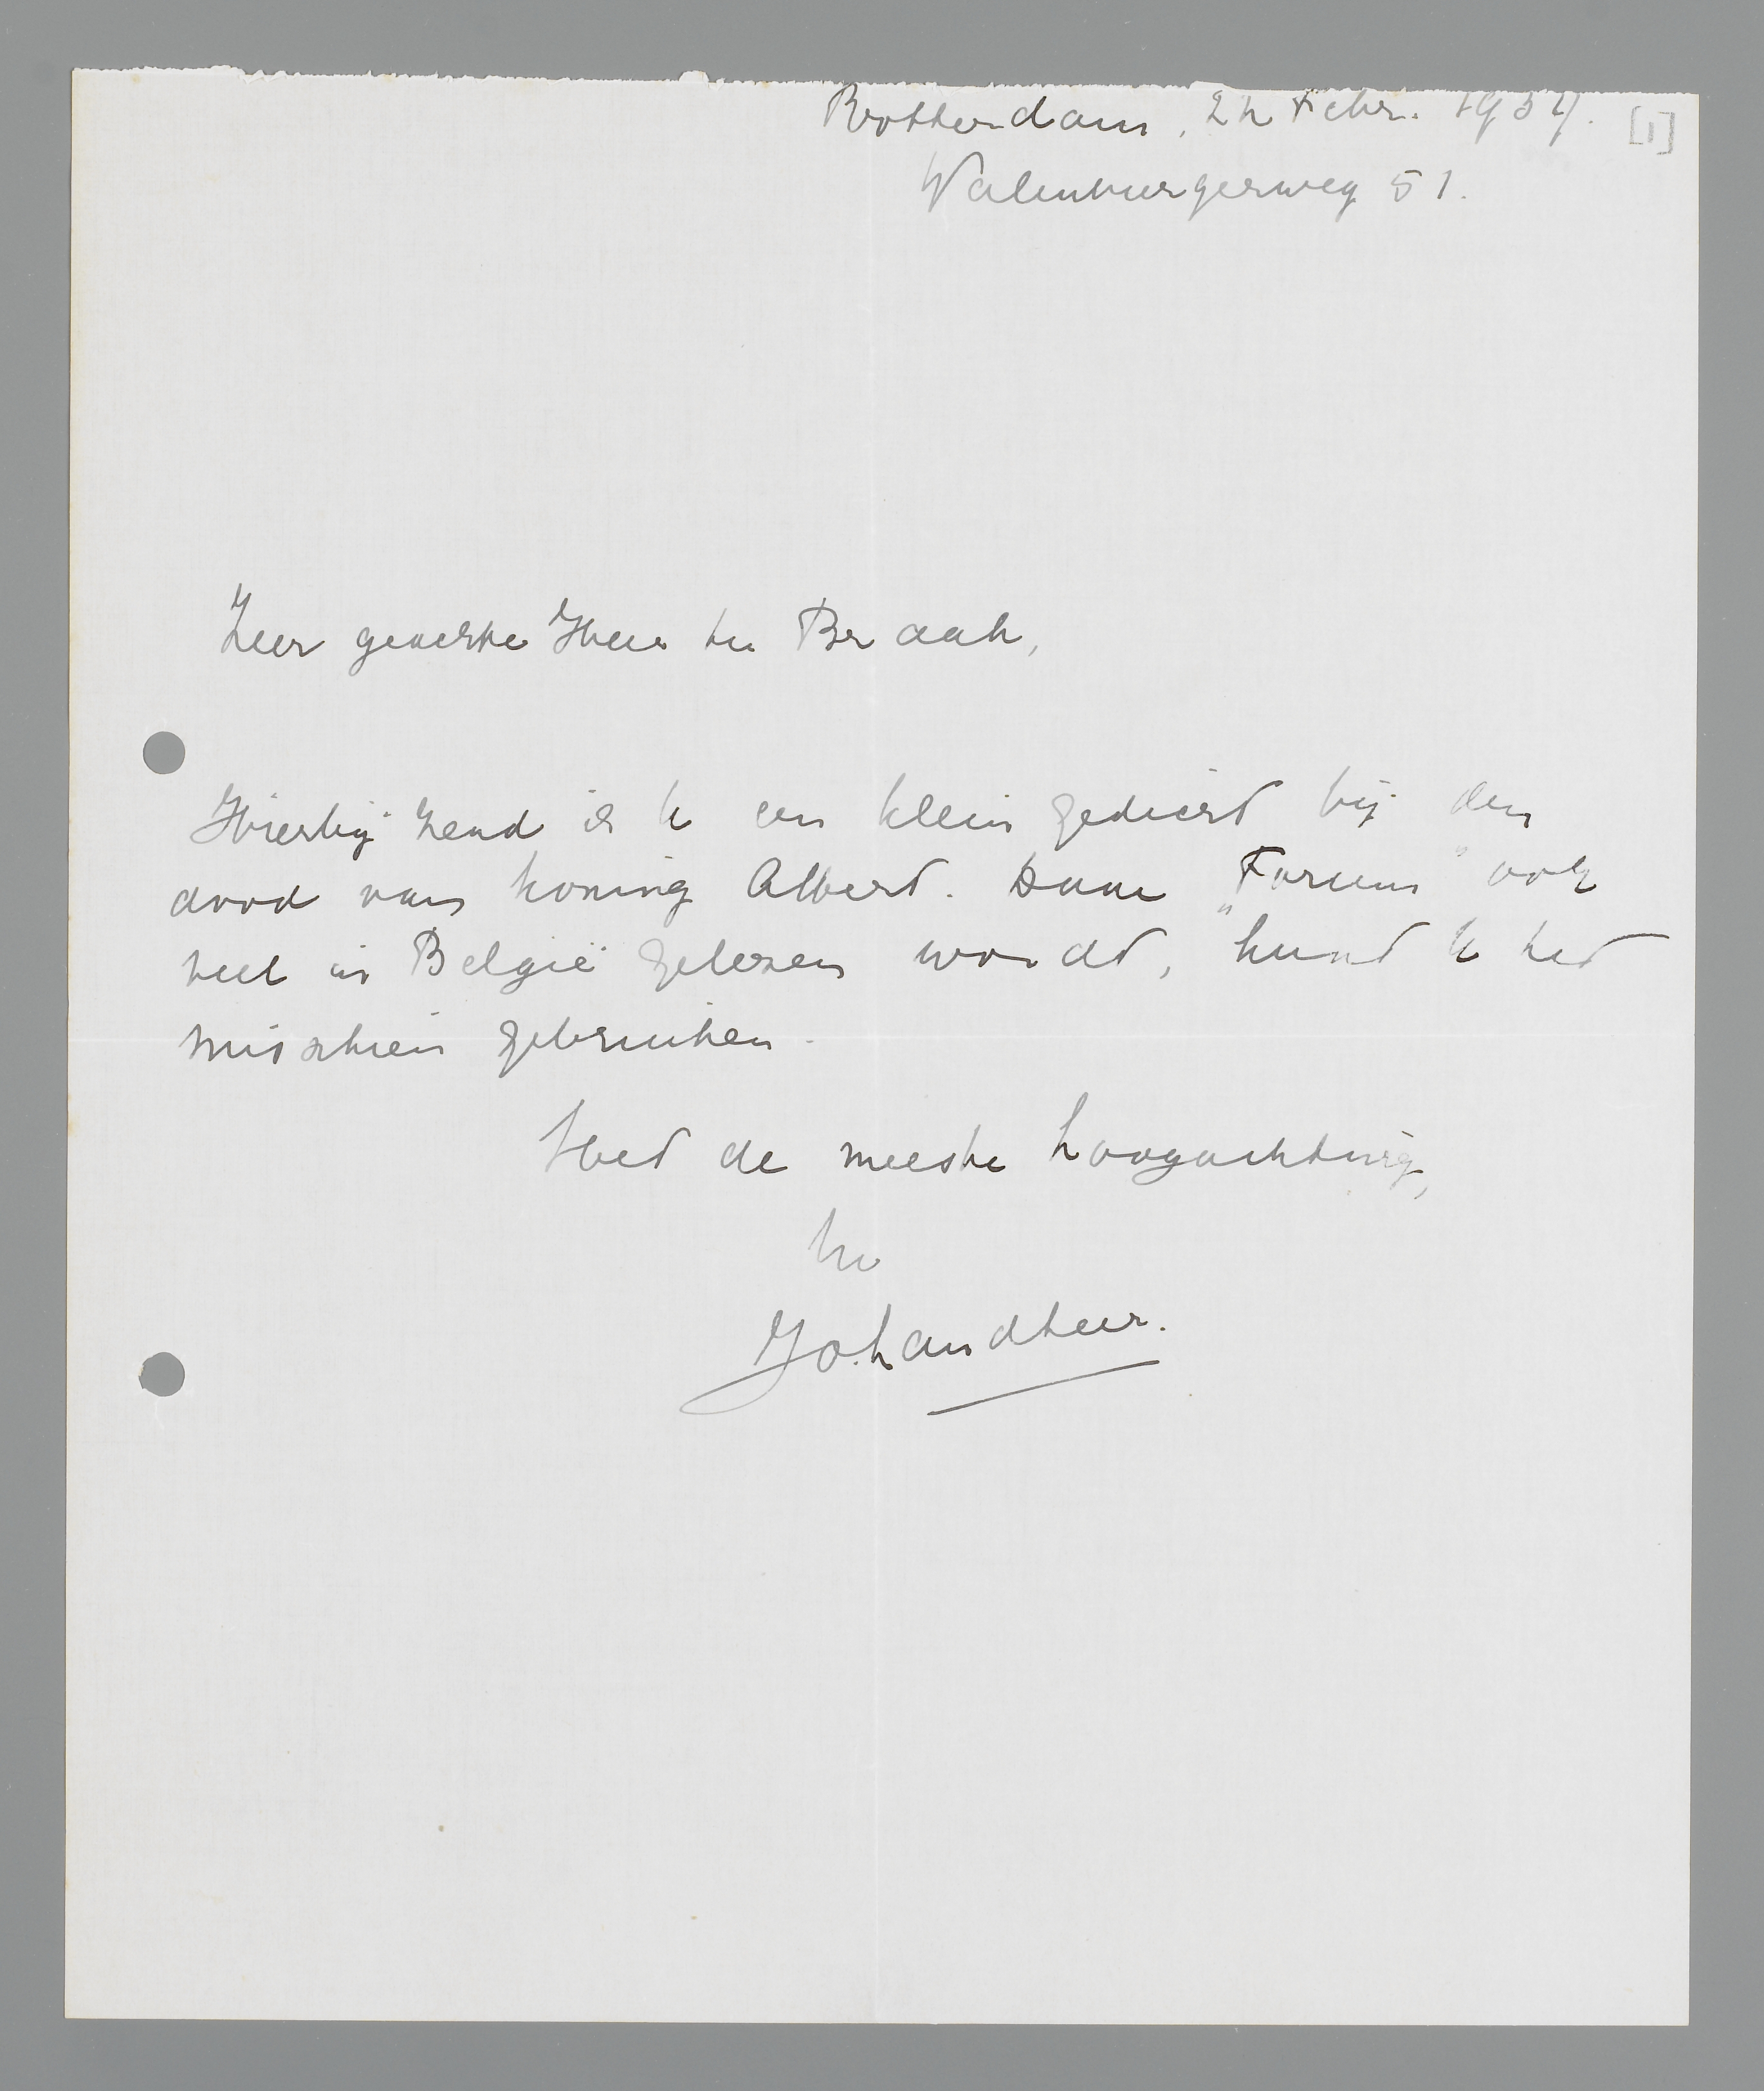 Rotterdam, Febr. 1934. [1]
Walenburgerweg 51.
Zeer geachte Heer ter Braak,
Hierbij zend ik U een klein gedicht bij den
dood van koning Albert. Daar „Forum" ook
veel in België gelezen wordt, kunt U het
misschien gebruiken.
Met de meeste hoogachting,
Uw
Jo Landheer.